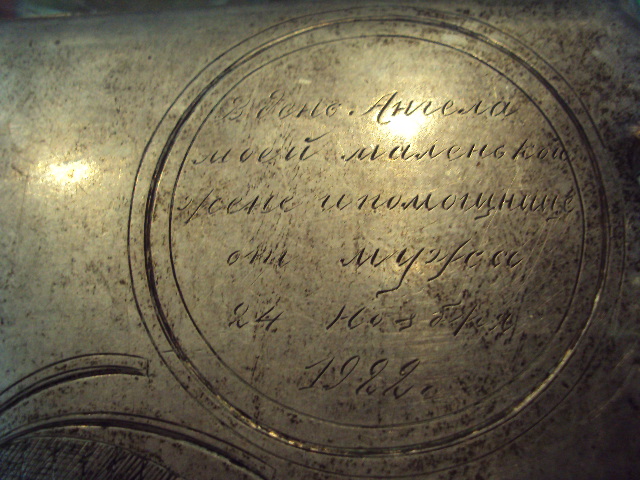 В день Ангела
моей маленькой
жене и помощнице
от мужа
24 Ноября
1922.